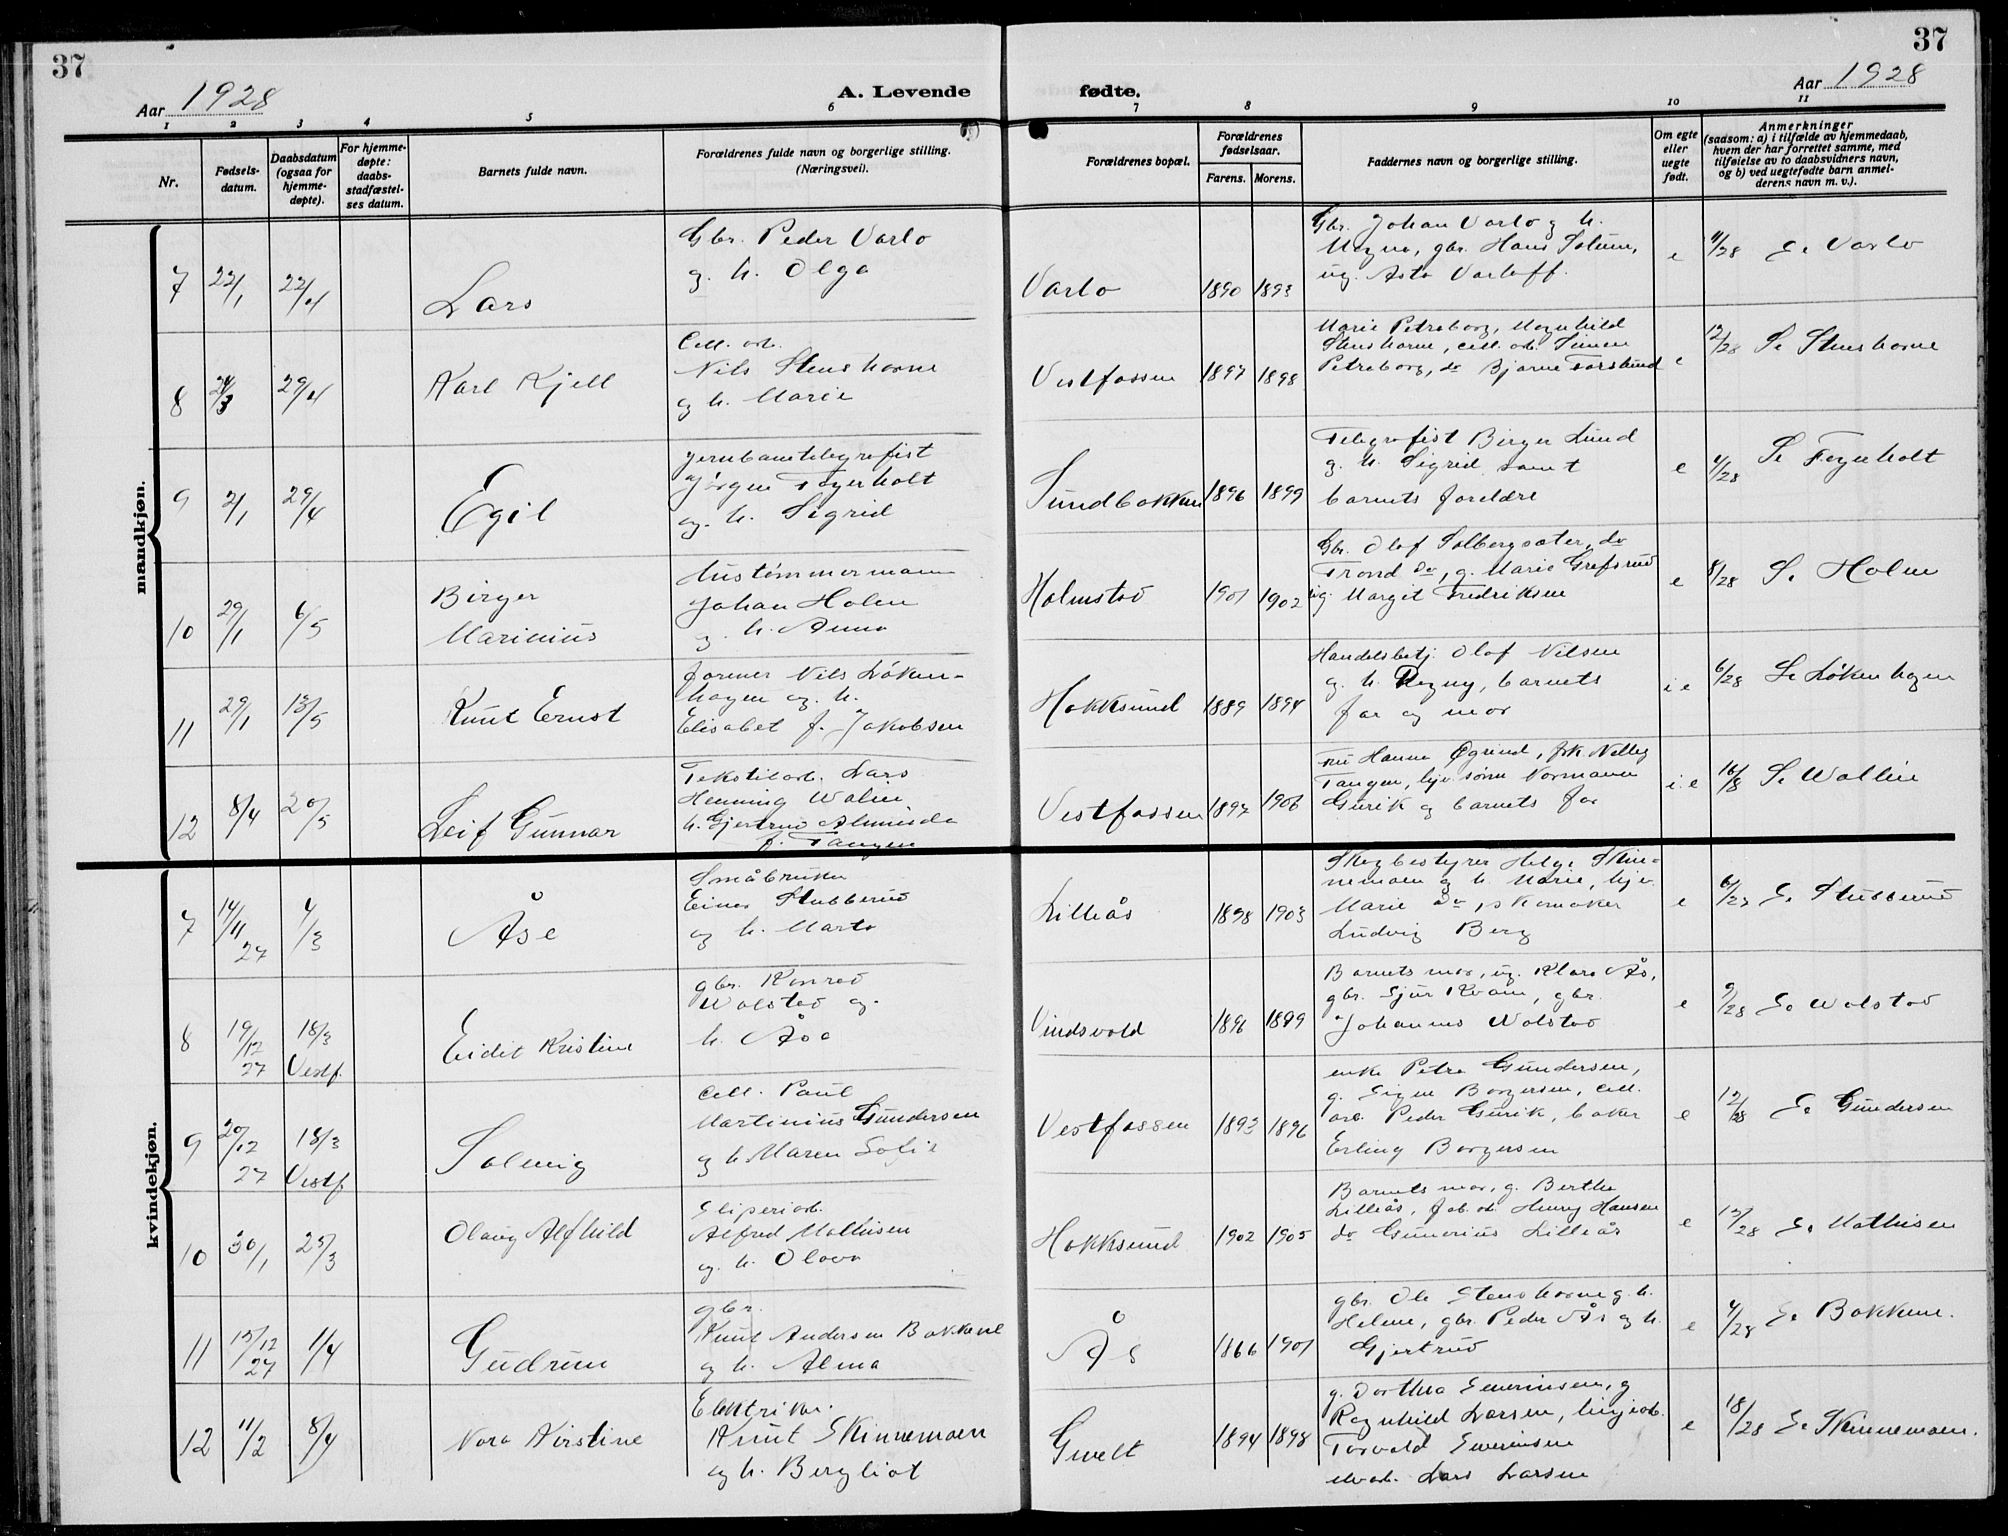 37
Aar 1928
A. Levende
1 2 3 4 5 6
Nr.
Fødsels-
datum.
Daabsdatum
(ogsaa for
hjemme-
døpte).
For hjemme-
døpte:
daabs-
stadfæstel-
ses datum.
Barnets fulde navn.
Forældrenes fulde navn og borgerlige stilling.
(Næringsvei).
mandkjøn.
7 22/1 22/4 Lars
Gbr. Peder Varlo
og h. Olga
8 24/3 29/4 Karl Kjell
Cell. arb.
Nils Stenshorne
og h. Marie
9 2/1 29/4 Egil
jernbanetelegrafist
Jørgen Fogerholt
og h. Sigrid
10 29/1 6/5 Birger
Marinius
Hustømmermann
Johan Holm
og h. Anna
11 29/1 13/5 Knut Ernst
former Nils Løken-
hagen og h.
Elisabet f. Jakobsen
12 8/4 20/5 Leif Gunnar
Tekstilarb. Lars
Henning Walin
h. Gjertrud Alminda
f. Tangen
kvindekjøn.
7 14/11 27 4/3 Åse
Småbruker
Einar Stubberud
og h. Marta
8 19/12 27 18/3 Vestf. Eidit Kristine
gbr. Konrad
Wolstad og
h. Åsa
9 20/12 27 18/3 Vestf. Solveig
Cell. Paul
Martinius Gundersen
og h. Maren Sofie
10 30/1 25/3 Olaug Alfhild
Sliperiarb.
Alfred Mathisen
og h. Olava
11 15/12 27 1/4 Gudrun
gbr.
Knut Andersen Bakkene
og h. Alma
12 11/2 8/4 Nora Kirstine
Elektriker.
Knut Skinnemoen
og h. Bergliot
37
Aar 1928
fødte.
7 8 9 10 11
Forældrenes bopæl.
Forældrenes
fødselsaar.
Farens. Morens.
Faddernes navn og borgerlige stilling.
Om egte
eller
uegte
født.
Anmerkninger
(saasom: a) i tilfælde av hjemmedaab,
hvem der har forrettet samme, med
tilføielse av to daabsvidners navn,
og b) ved uegtefødte barn anmel-
derens navn m. v.).
Varlo 1890 1893
Gbr. Johan Varlo g h.
Magna, gbr. Hans Solum,
ug. Asta Varloff.
e 11/28 S. Varlo
Vestfossen 1897 1898
Marie Petraborg, Magnhild
Stenshorne, cell. arb. Simen
Petraborg, do Bjarne Forslund
e 12/28 S. Stenshorne
Sundbakken 1896 1899
Telegrafist Birger Lund
g. h. Sigrid samt
barnets foreldre
e 4/28 S. Fogerholt
Holmstad 1901 1902
Gbr. Olaf Solbergsæter, do
Trond do, g. Marie Grefsrud
ug. Margit Fredriksen
e 8/28 S. Holm
Hokksund 1889 1894
Handelsbetj. Olaf Nilsen
g. h. Ragny, barnets
far og mor
i.e 6/28 S. Løkenhagen
Vestfossen 1897 1906
Fru Hanna Øgrind, frk. Nelly
Tangen, hjv. sønn Normann
Gurik og barnets far
i.e 16/8 S. Wallin
Lilleås 1898 1903
Skogbestyrer Helge Skin-
nemoen og h. Marie, hjv.
Marie do, skomaker
Ludvig Berg
e S. Stubberud
Vindsvold 1896 1899
Barnets mor, ug. Klara Ås,
gbr. Sjur Kvam, gbr.
Johannes Wolstad
e 9/28 S. Wolstad
Vestfossen 1893 1896
enke Petra Gundersen,
g. Signe Borgersen, cell.
arb. Peder Gurik, baker
Erling Borgersen
e 12/28 S. Gundersen
Hokksund 1902 1905
Barnets mor, g. Berthe
Lilleås, fab. arb. Henry Hansen
do Gunerius Lilleås
e 12/28 S. Mathisen
Ås 1866 1901
gbr. Ole Stenshorne g. h.
Helene, gbr. Peder Ås og h.
Gjertrud
e 4/28 S. Bakkene.
1894 1898
g. Dorthea Severinsen, g
Ragnhild Larsen, linjearb.
Torvald Severinsen
elvarb. Lars Larsen
e 18/28 S. Skinnemoen.